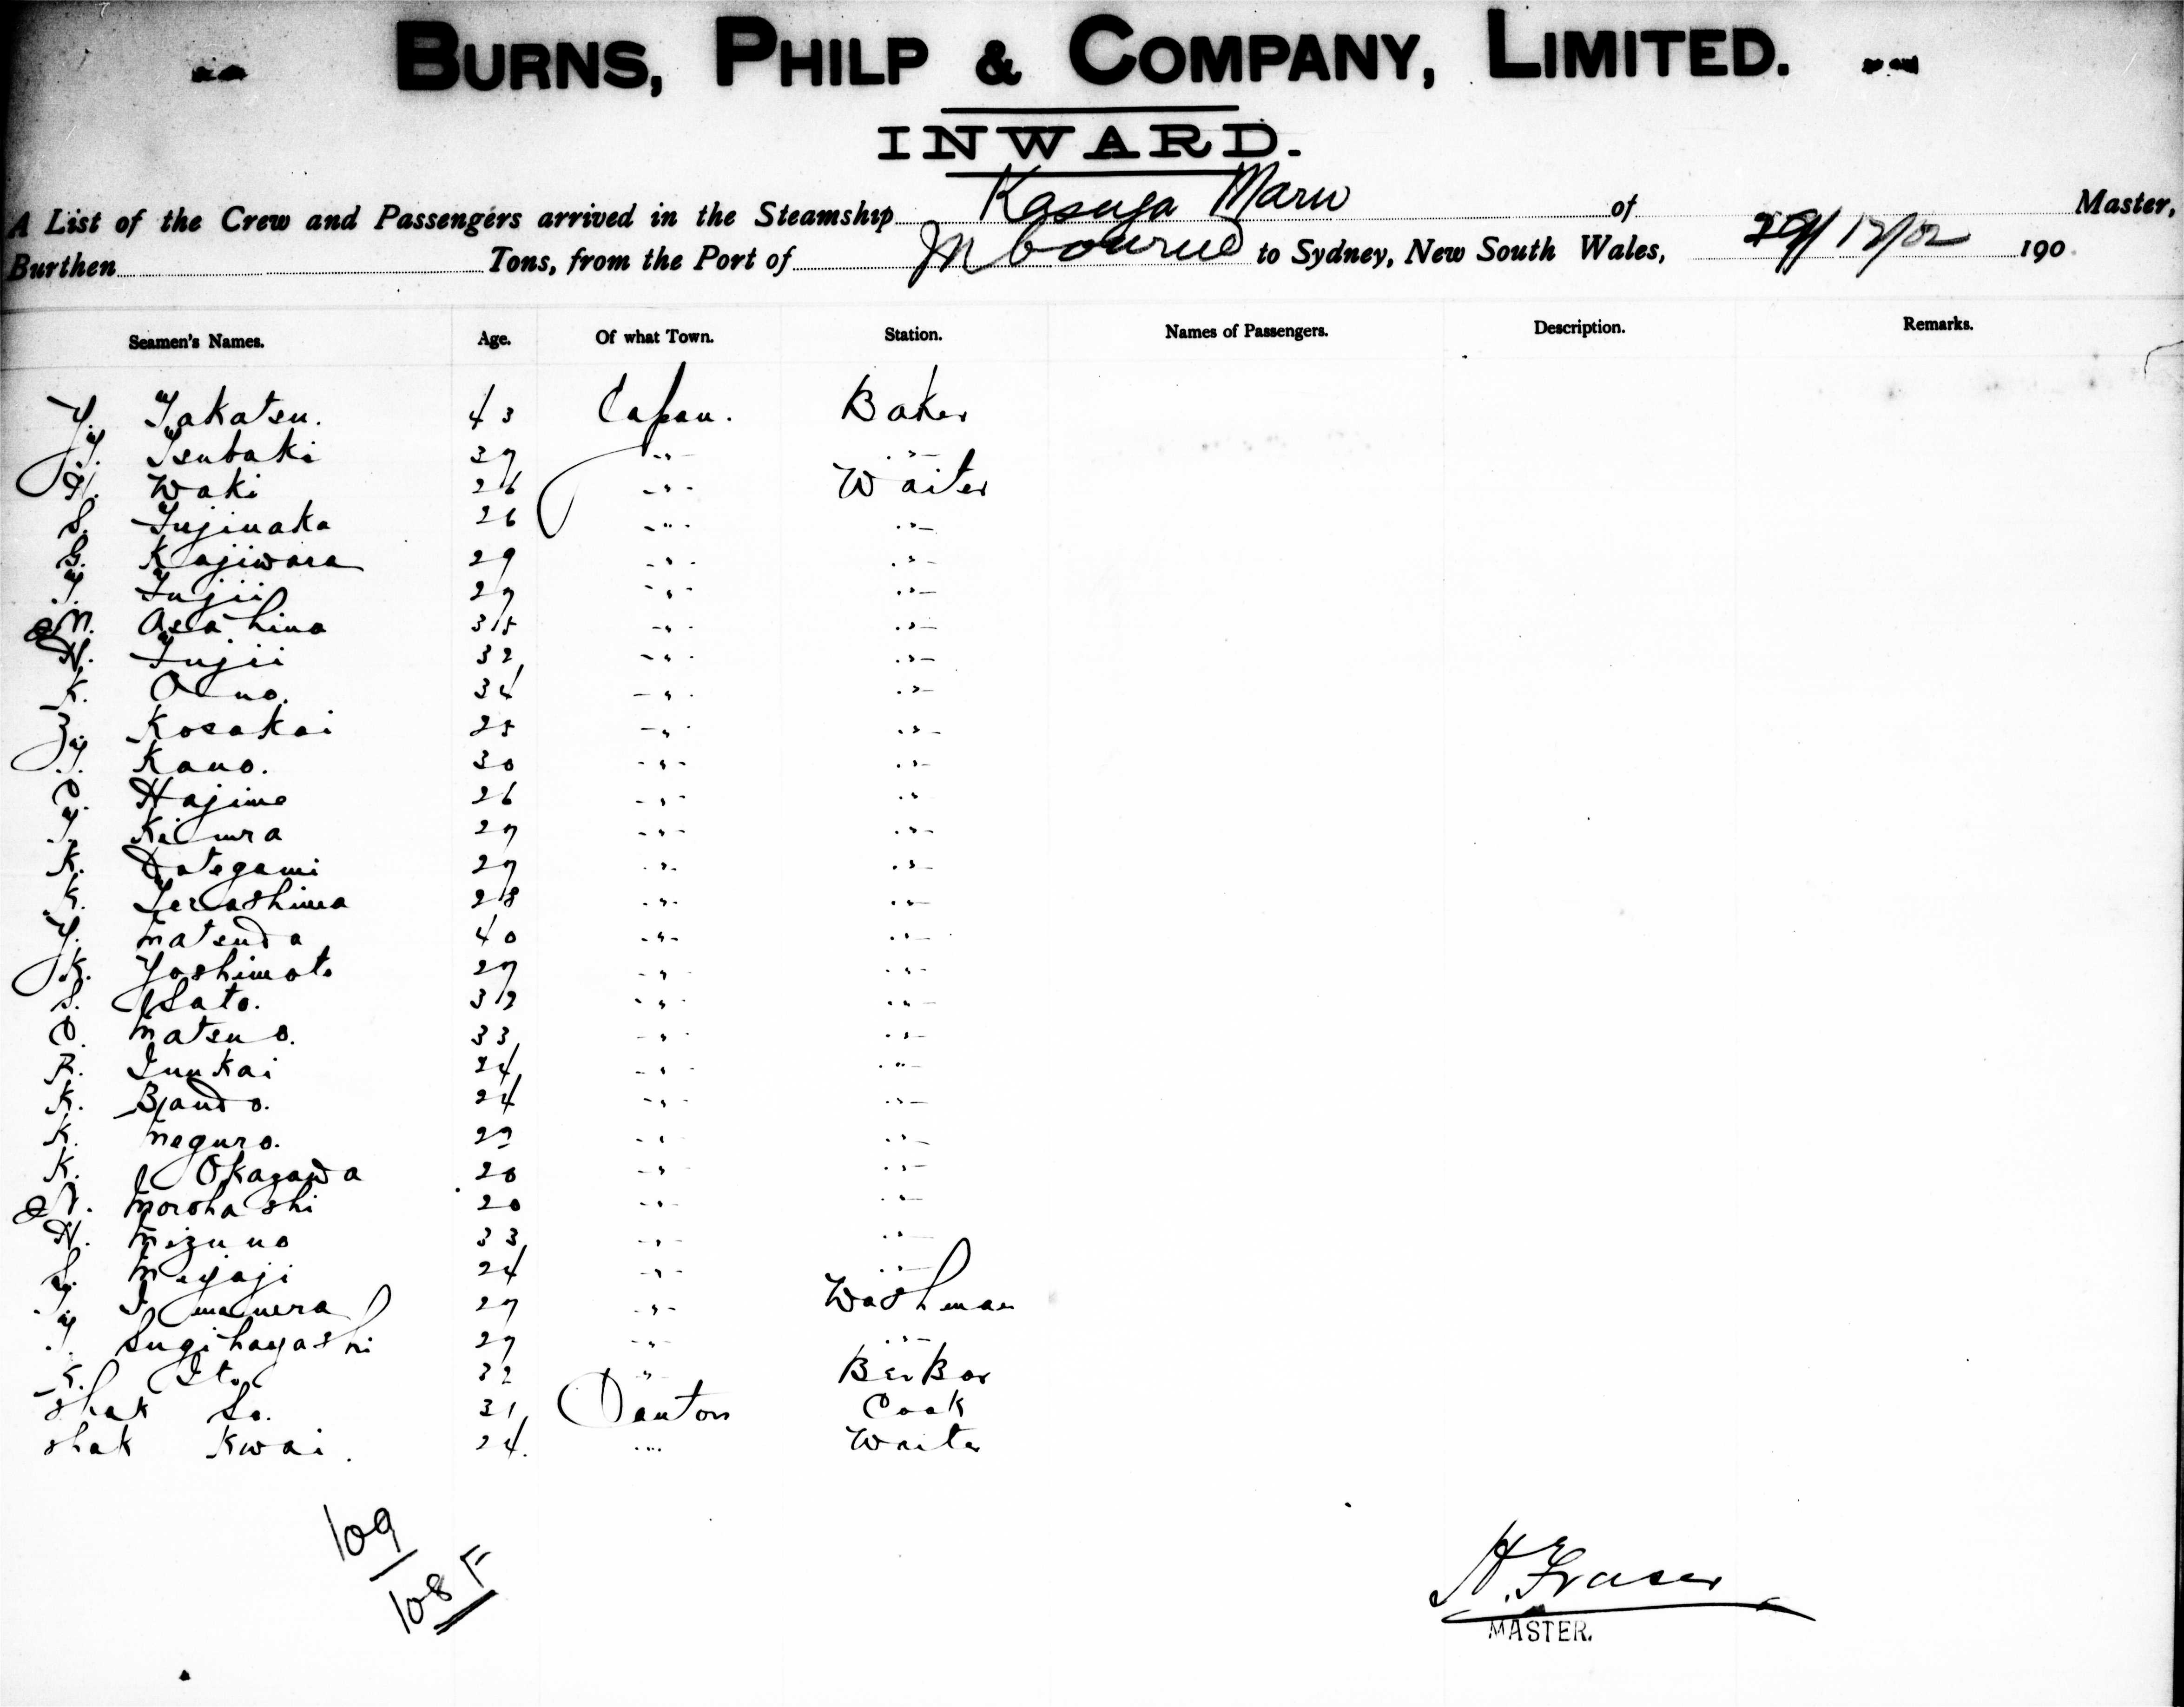 BURNS, PHILP & COMPANY, LIMITED.
INWARD.
A List of the Crew and Passengers arrived in the Steamship Kasuga Maru of Master,
Burthen Tons, from the Port of Mbourne to Sydney, New South Wales, 29/12/02 190
Seamen's Names. Age. Of what Town. Station. Names of Passengers. Description. Remarks.
Y. Takatsu. 43 Japan. Baker
T. Tsubaki 37 " "
H. Waki 26 " Waiter
S. Fujinaka 26 " "
G. Kajiwara 29 " "
T. Fujii 27 " "
M. Asahina 35 " "
H. Fujii 32 " "
K. Ono. 34 " "
Z. Kosakai 25 " "
T. Kano. 30 " "
Hajime 26 " "
T. Kimura 27 " "
K. Dategami 27 " "
K. Terashima 28 " "
Y. Matsuda 40 " "
K. Yoshimoto 27 " "
S. Sato. 32 " "
O. Matsuo. 33 " "
R. Inukai 24 " "
K. Bando. 24 " "
K. Meguro. 22 " "
K. Okagawa 20 " "
N. Morohashi 20 " "
H. Mizuno 33 " "
S. Miyaji 24 " "
T. Imamura 27 " Washman
T. Sugihayashi 27 " "
K. Ito 32 " BerBer
Shak So. 31 Canton Cook
Shak Kwai. 24. " Waiter
109
108 F
H. Fraser
MASTER.